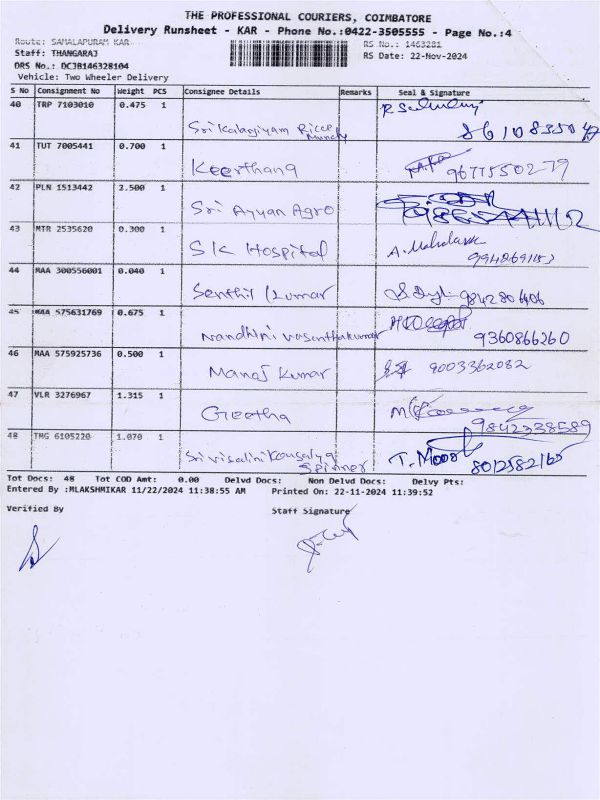 THE PROFESSIONAL COURIERS, COIMBATORE
Delivery Runsheet - KAR - Phone No.:0422-3505555 - Page No.:4
Route: SAMALAPURAM KAR
RS No.: 1463281
Staff: THANGARAJ
RS Date: 22-Nov-2024
DRS No.: DCJB146328104
Vehicle: Two Wheeler Delivery
S No Consignment No Weight PCS Consignee Details Remarks Seal & Signature
40 TRP 7103010 0.475 1
Sri Kalagiyam Ricee Mundy
41 TUT 7005441 0.700 1
Keerthana 9677550279
42 PLN 1513442 3.500 1
Sri Ayyan Agro
43 MTR 2535620 0.300 1
SK Hospital A. Mahalaxm
44 MAA 300556001 0.040 1
Senthil Kumar 9842806406
45 MAA 575631769 0.675 1
Nandhini vasanthakumar 9360866260
46 MAA 575925736 0.500 1
Manoj Kumar 9003362082
47 VLR 3276967 1.315 1
Geetha 9842338589
48 TMG 6105220 1.070 1
Sri visalini Kousalya Spinner T. Moor 8012582165
Tot Docs: 48 Tot COD Amt: 0.00 Delvd Docs: Non Delvd Docs: Delvy Pts:
Entered By :MLAKSHMIKAR 11/22/2024 11:38:55 AM Printed On: 22-11-2024 11:39:52
Verified By Staff Signature